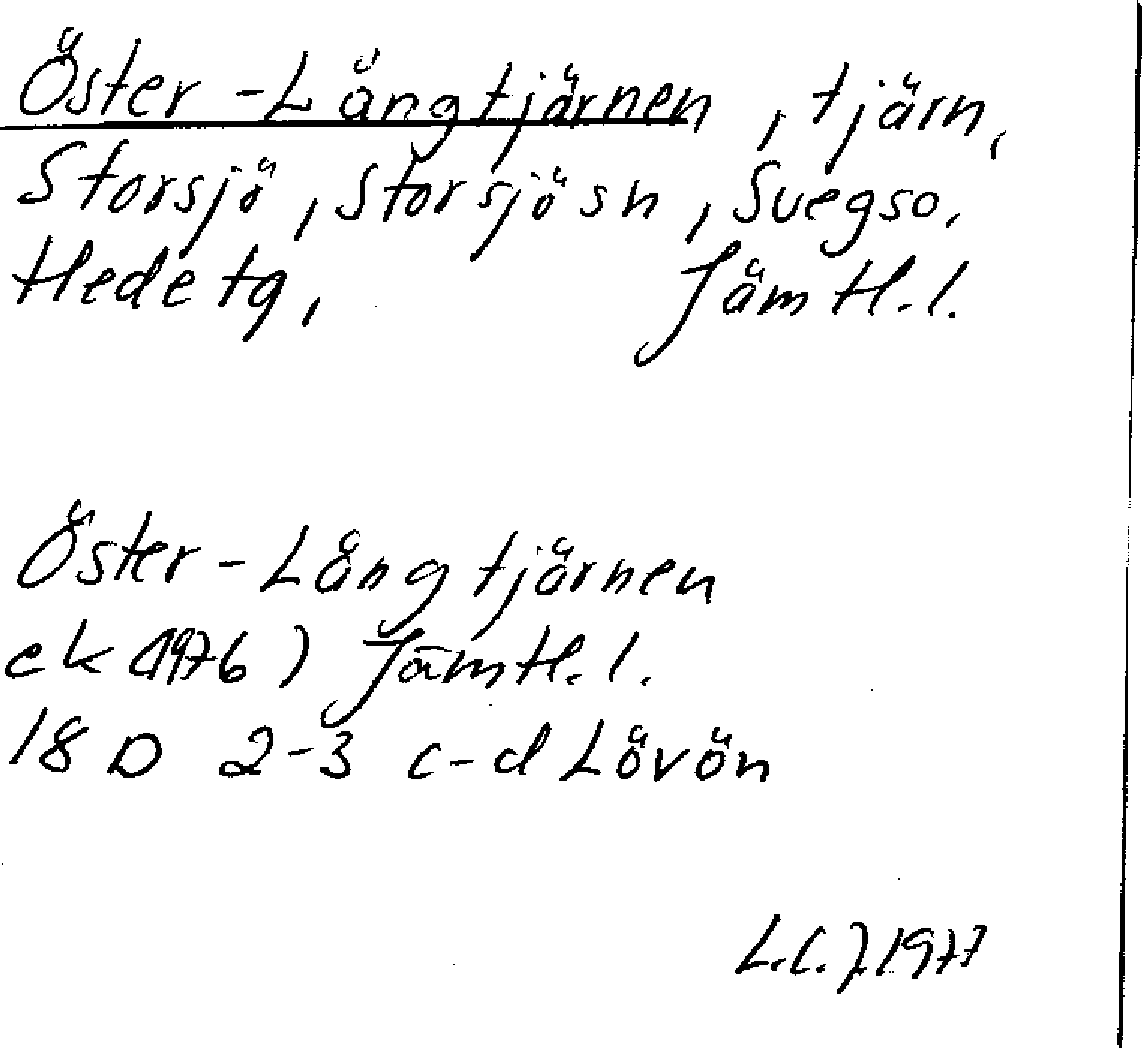 Öster-Långtjärnen, tjärn,
Storsjö, Storsjösn, Svegso,
Hede tg, Jämtl. l.
Öster-Långtjärnen
ek (1976) Jämtl. l.
18 D 2-3 c-d Lövön
L.C.J. 1977